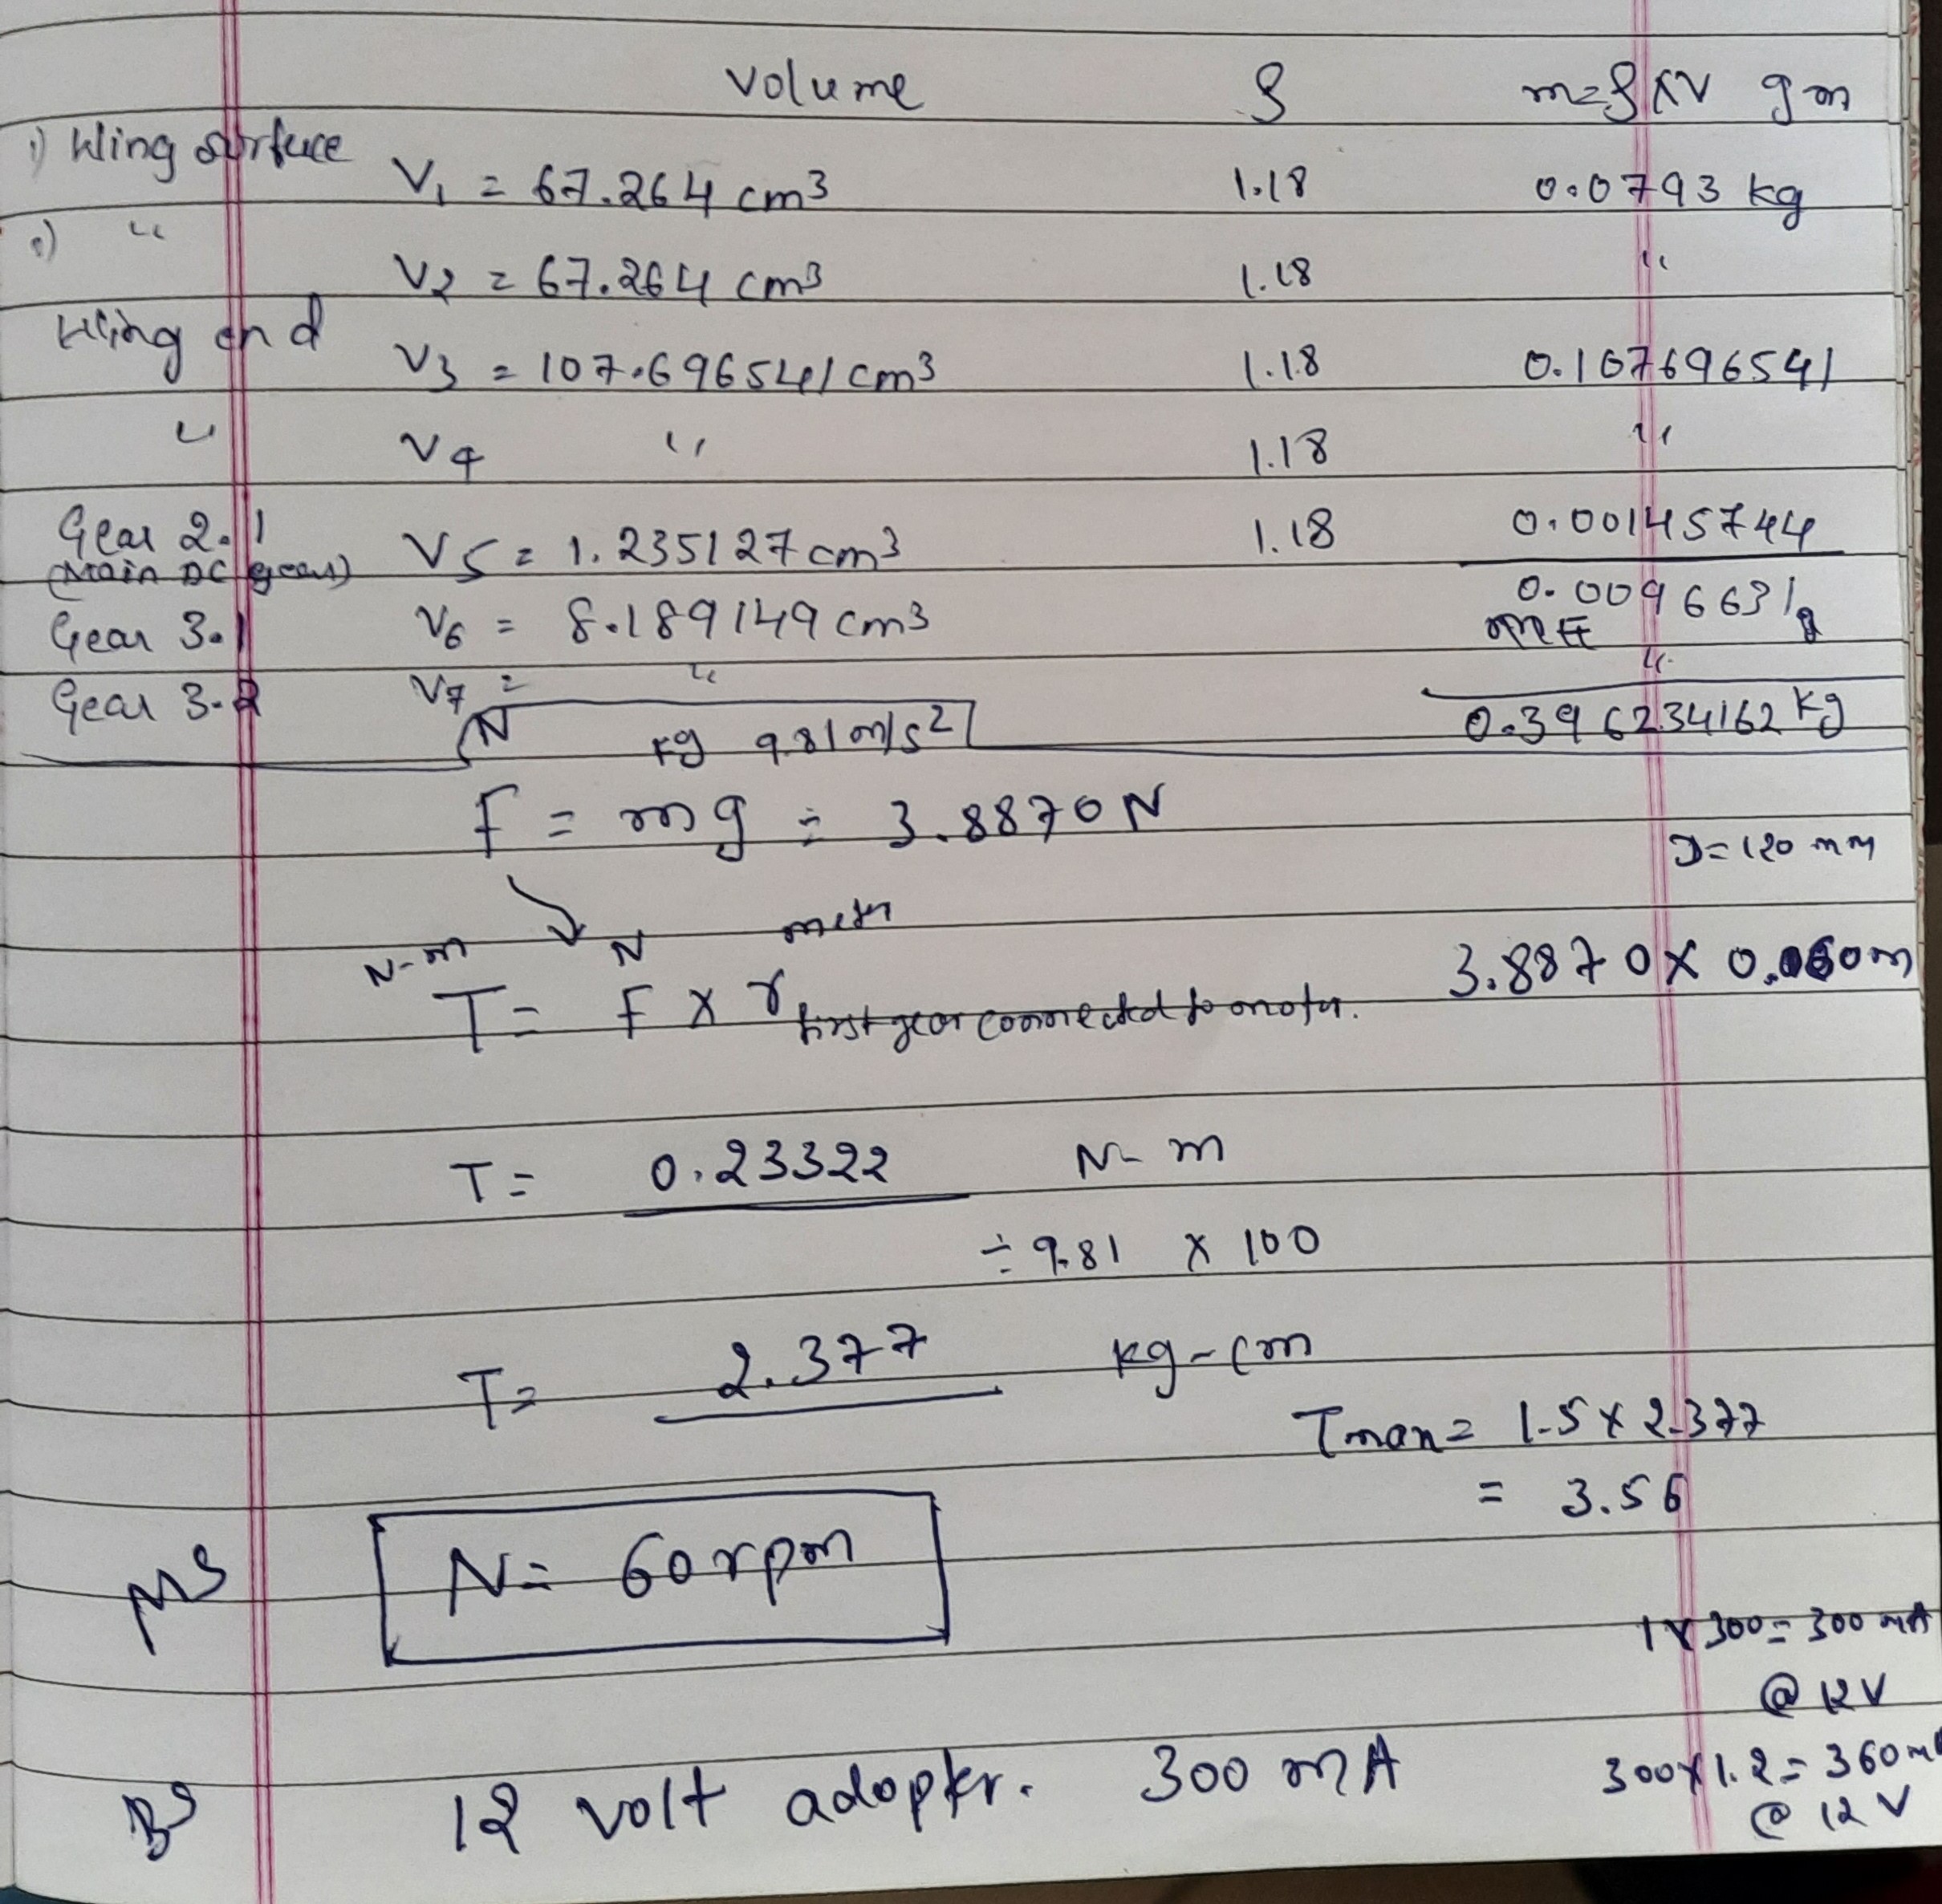 volume ρ m=ρxV gm
1) Wing surface V1 = 67.264 cm3 1.18 0.0793 kg
2) " V2 = 67.264 cm3 1.18 "
Wing end V3 = 107.696541 cm3 1.18 0.107696541
" V4 " 1.18 "
Gear 2.1 V5 = 1.235127 cm3 1.18 0.00145744
(Main DC gear)
Gear 3.1 V6 = 8.189149 cm3 0.0096631g
Gear 3.2 V7 = " "
N kg 9.81 m/s2 0.396234162 kg
F = mg = 3.8870 N
D=120 mm
N-m N meter
T= F x r first gear connected to motor. 3.8870 x 0.060m
T= 0.23322 N-m
÷ 9.81 x 100
T= 2.377 kg-cm
Tmax = 1.5 x 2.377
= 3.56
MS N= 60 rpm
1 x 300 = 300 mA
@ 12 V
BS 12 volt adopter. 300 mA 300 x 1.2 = 360 m
@ 12 V